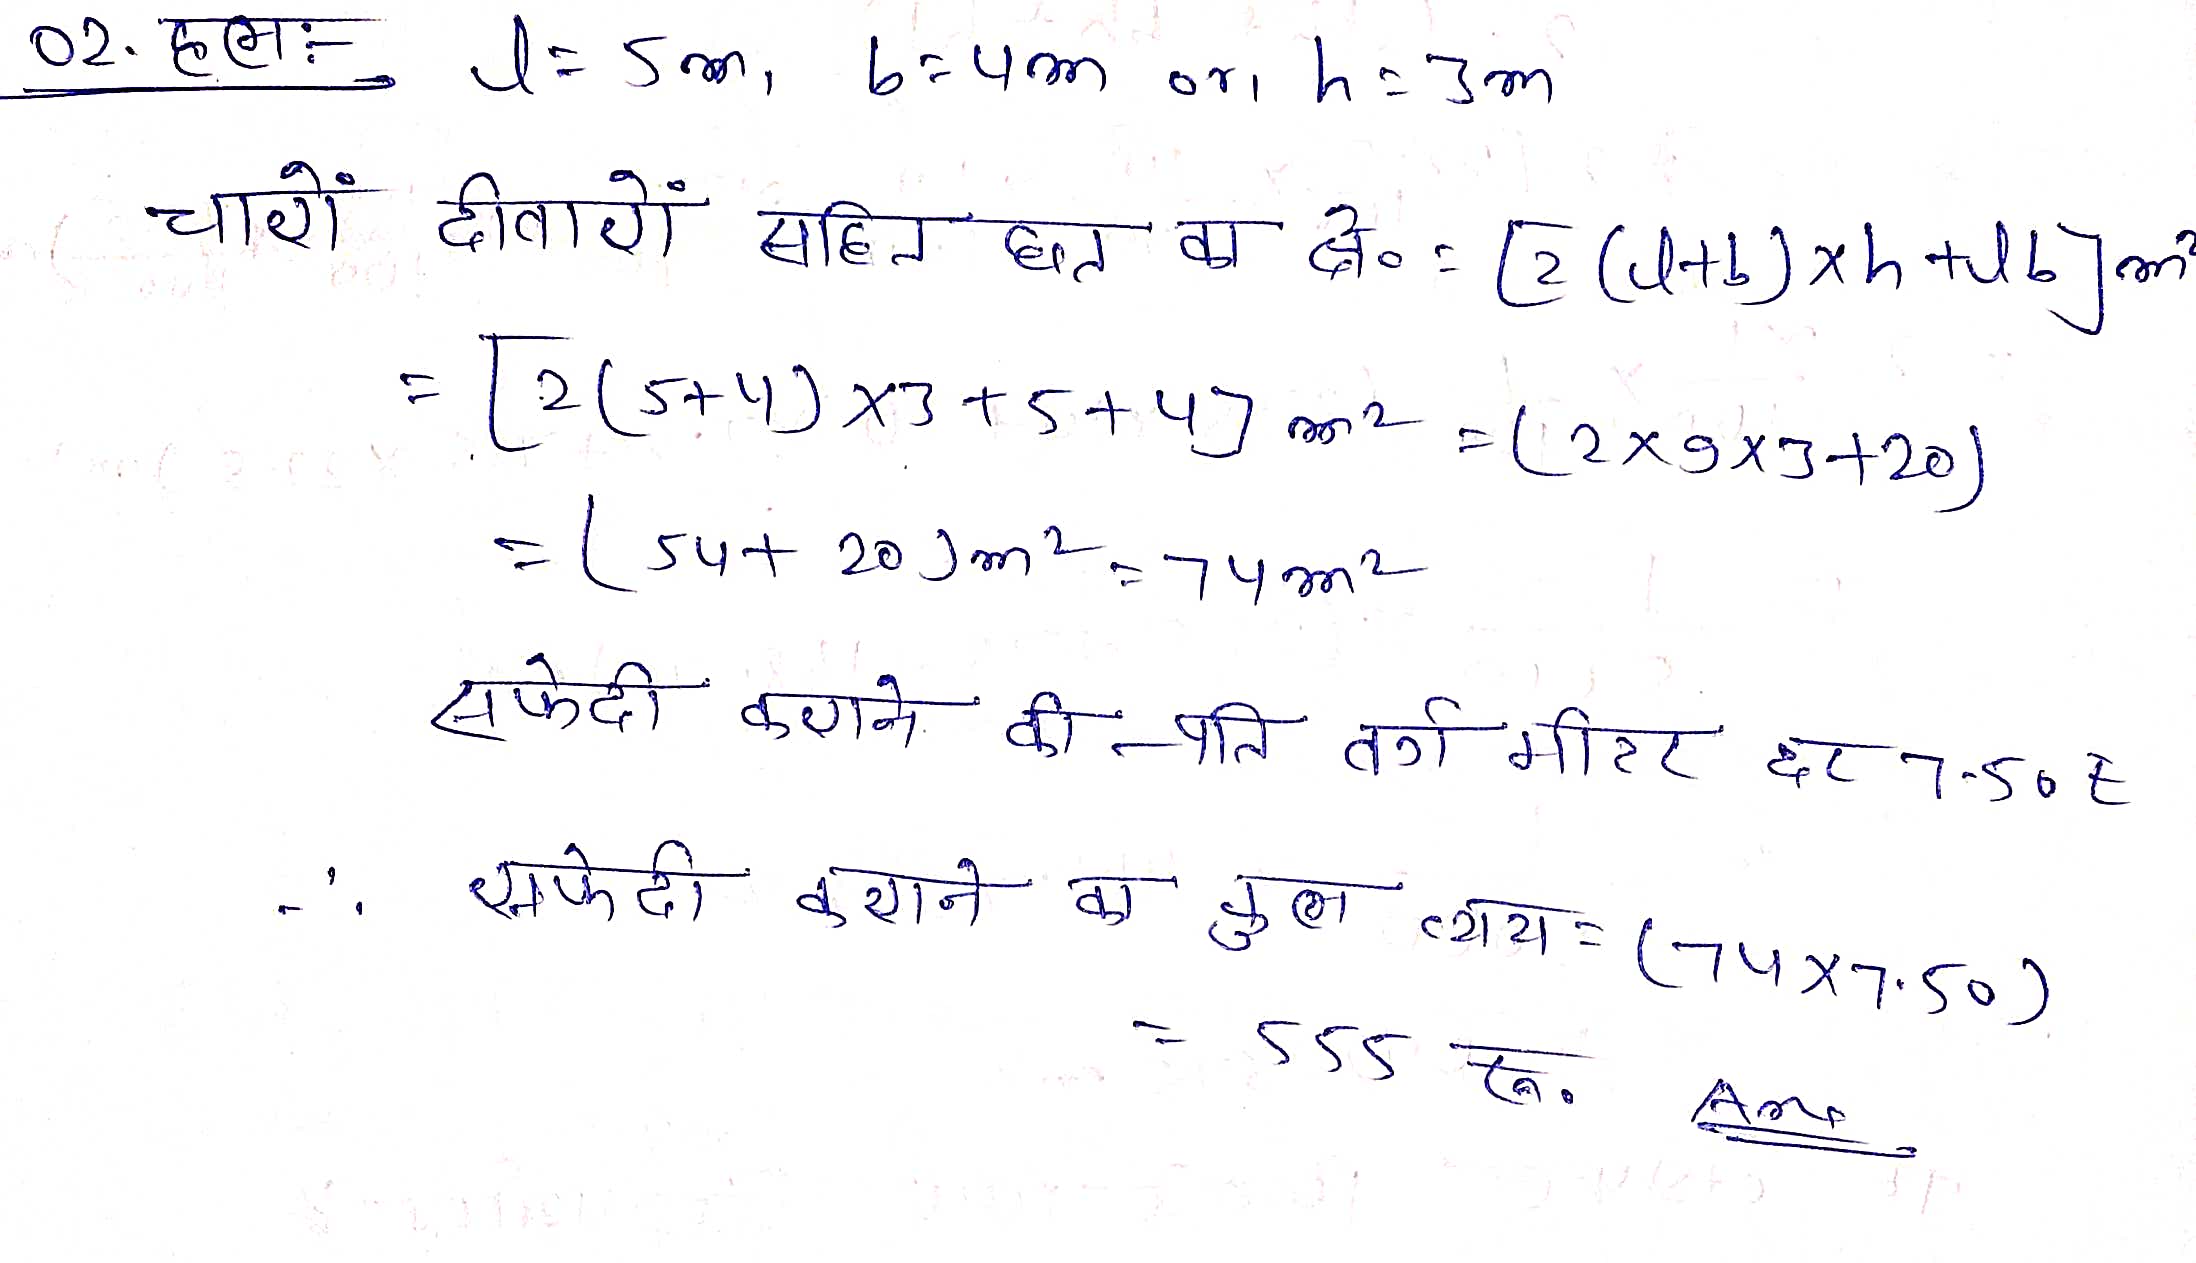 02. हल:- l = 5m, b = 4m or, h = 3m
चारों दीवारों सहित छत का क्षे० = [2(l+b)×h+lb]m²
= [2(5+4)×3+5+4]m² = (2×9×3+20)
= (54+20)m² = 74m²
सफेदी कराने की प्रति वर्ग मीटर दर 7.50 ₹
∴ सफेदी कराने का कुल व्यय = (74×7.50)
= 555 रू. Ans